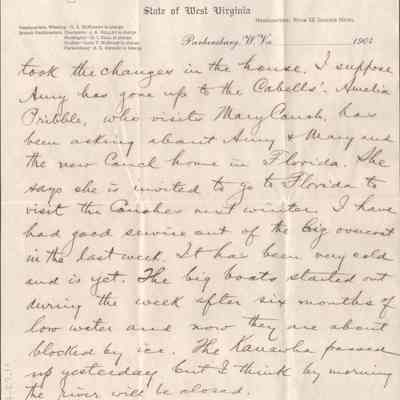 State of West Virginia
Parkersburg, W. Va. 190
took the changes in the house. I suppose
Amy has gone up to the Cabells'. Amelia
Pribble, who visits Mary Caush, has
been asking about Amy & Mary and
the new home in Florida. She
says she is invited to go to Florida to
visit the next winter. I have
had good service out of the big overcoat
in the last week. It has been very cold
and is yet. The big boats started out
during the week after six months of
low water and now they are about
blocked by ice. The Kanawha passed
up yesterday but I think by morning
the river will be closed.